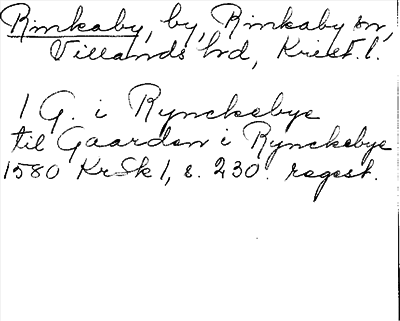 Rinkaby, by, Rinkaby sn,
Villands hd, Krist. l.
1 G. i Rynckebye
til Gaarden i Rynckebye
1580 KrSk 1, s. 230. regest.